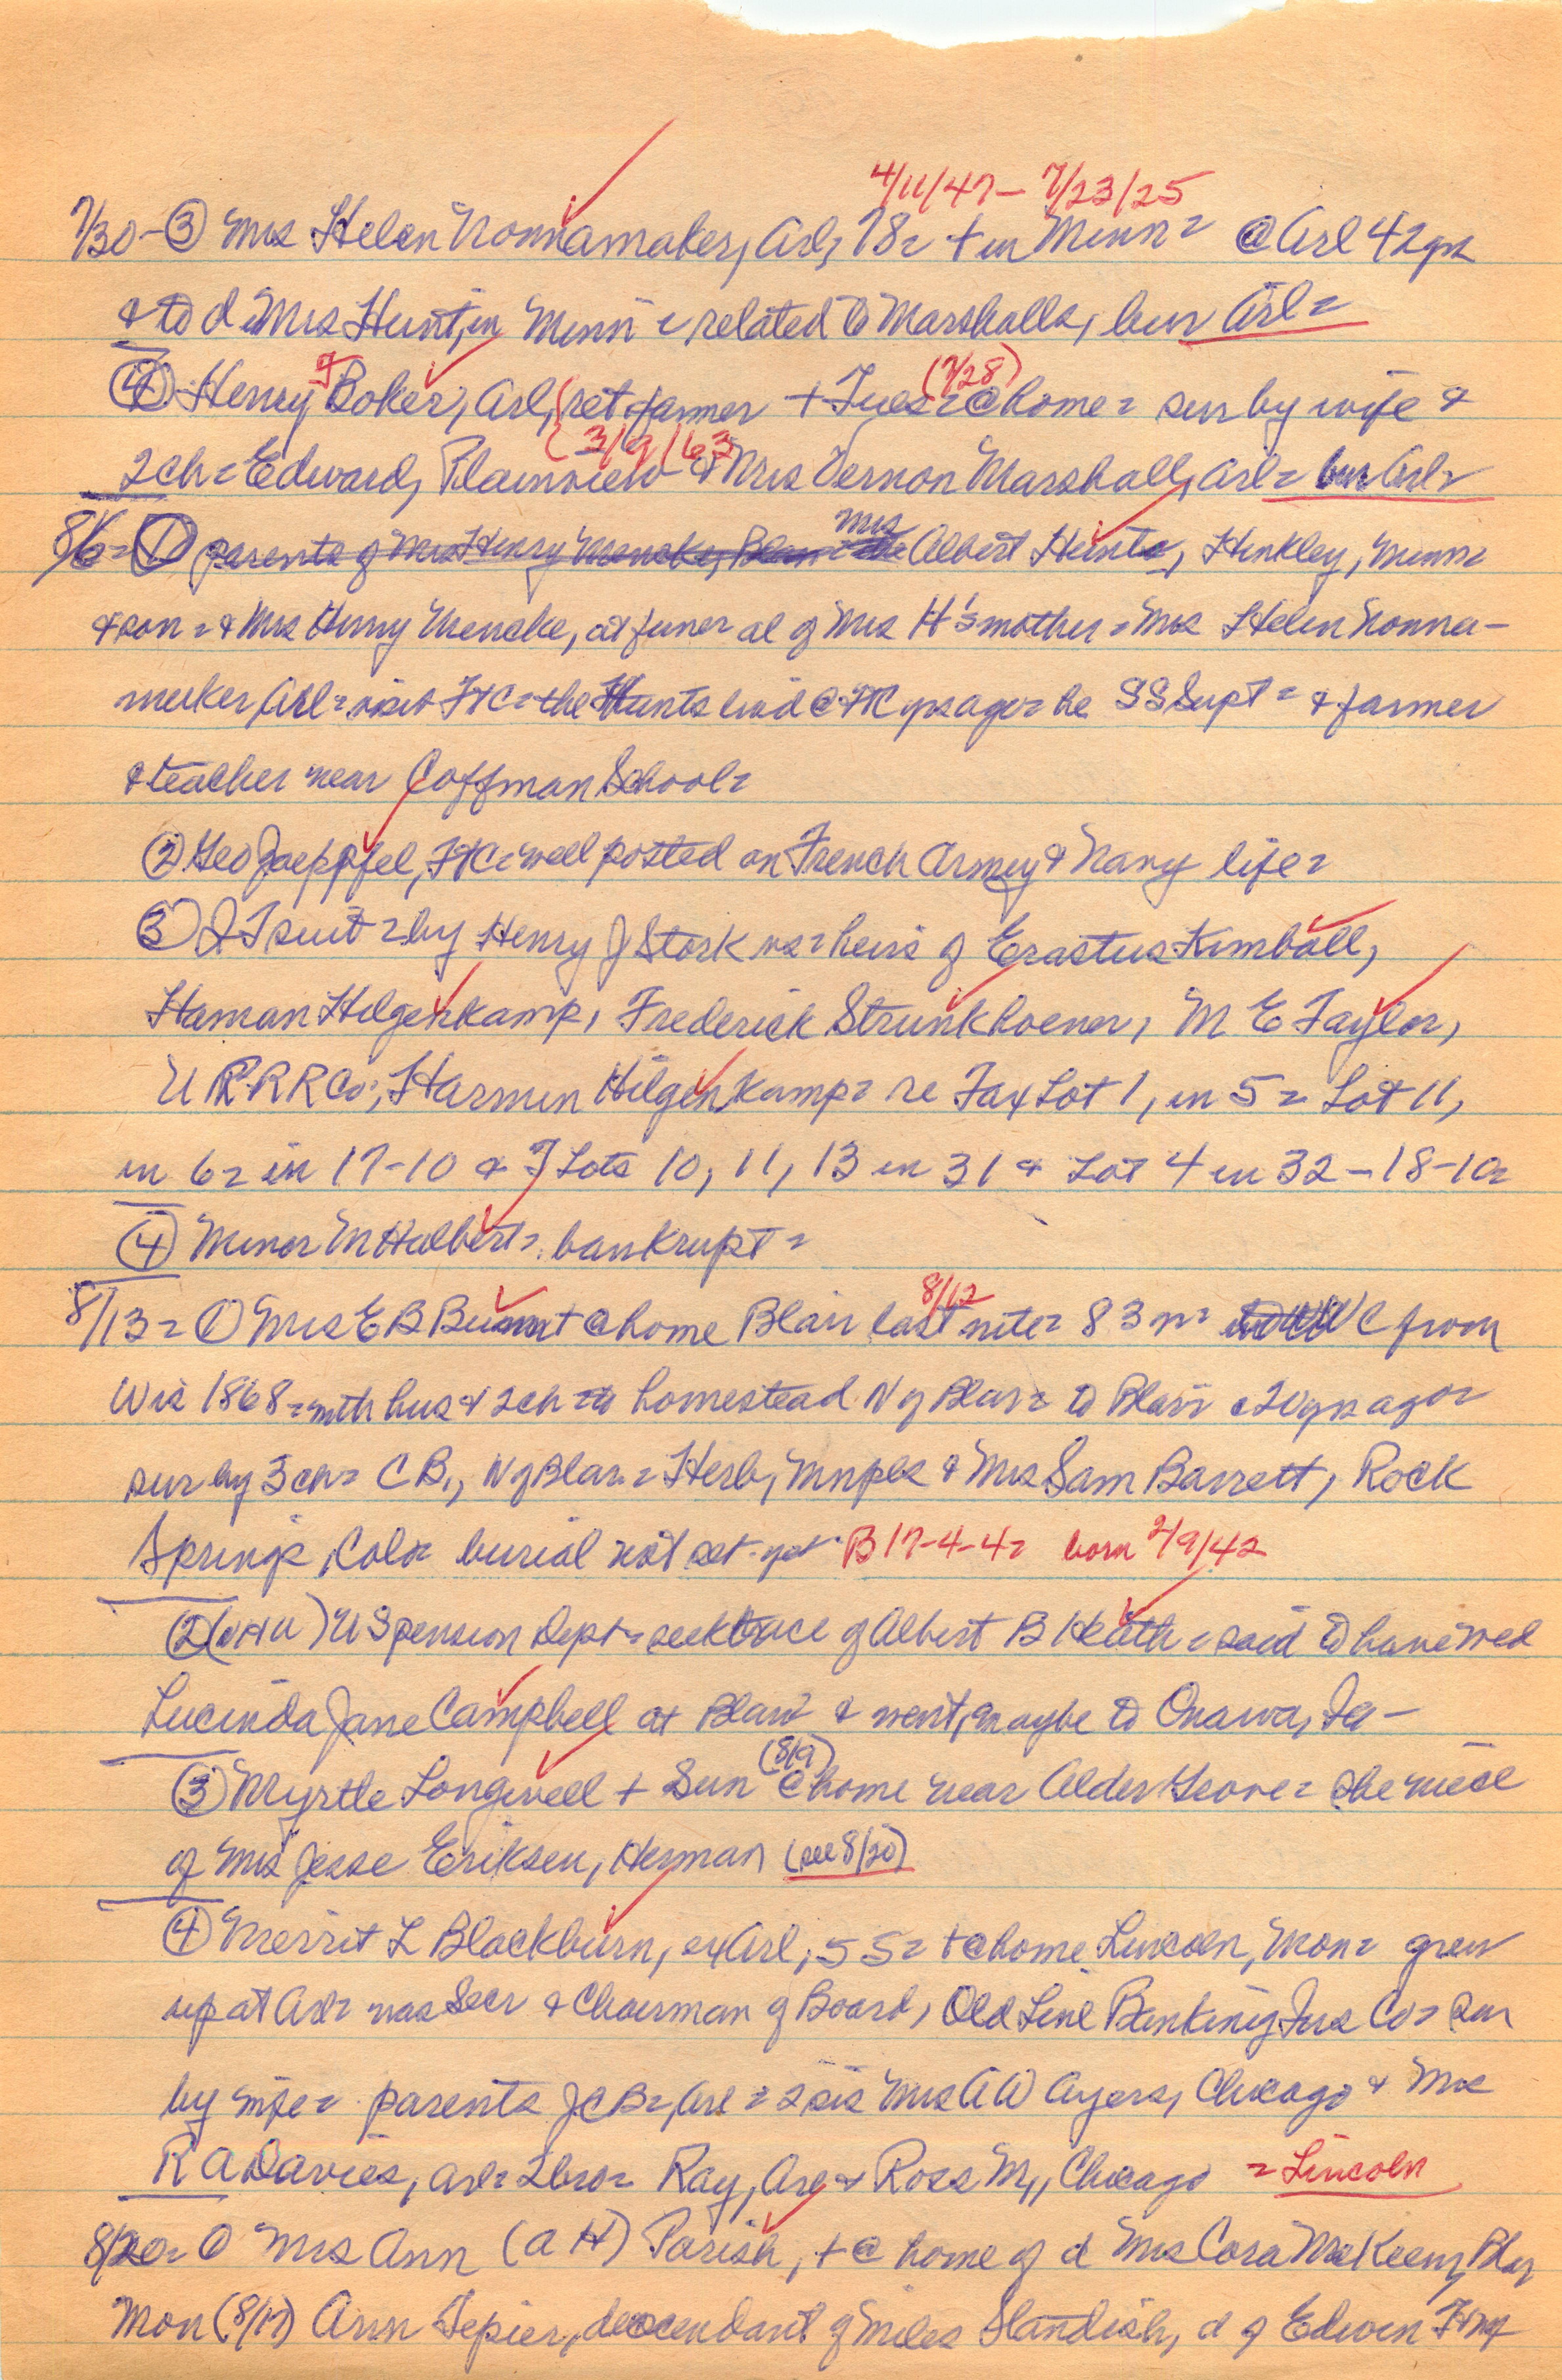 4/11/47 – 7/23/25
7/30 – ③ Mrs Helen Nonnamaker, Arl, 78 = + in Minn = @ Arl 42 yrs
& to d Mrs Hunt, in Minn = related to Marshalls, bur Arl =
④ Henry J Boker, Arl, ret farmer + Tues = (7/28) @ home = sur by wife &
(3/9/63
2 ch = Edward, Plainview & Mrs Vernon Marshall, Arl = bur Arl =
8/6 = ① parents of Mrs Henry Mencke, Blair = Mrs Albert Hunt, Hinkley, Minn =
& son = & Mrs Henry Mencke, at funeral of Mrs H's mother = Mrs Helen Nonna-
meker, Arl = visit FtC = the Hunts lived @ FtC yrs ago = he SS Supt = & farmer
& teacher near Coffman School =
② Geo Jaeppfel, FtC = well posted on French Army & Navy life =
③ QT suit = by Henry J Stork vs = heirs of Erastus Kimball,
Haman Hilgenkamp, Frederick Strunkhoener, M E Taylor,
U P R R Co; Harmen Hilgenkamp = re Tax Lot 1, in 5 = Lot 11,
in 6 = in 17-10 & T Lots 10, 11, 13 in 31 & Lot 4 in 32 – 18-10 =
④ Miner M Hulbert = bankrupt =
8/13 = ① Mrs E B + @ home Blair last nite = 8/12 83 = WC from
Wis 1868 = with hus & 2 ch = to homestead N of Blair = to Blair c 20 yrs ago =
sur by 3 ch = C B., N of Blair = Herb, Mnpls & Mrs Sam Barrett, Rock
Springs, Colo = burial not set yet B 17-4-4 = born 2/9/42
② US pension Dept = seek trace of Albert B Heath = said to have wed
Lucinda Jane Campbell at Blair & went, maybe to Onawa, Ia –
③ Myrtle Longwell + Sun (8/9) @ home near Alder Grove = she niece
of Mrs Jesse Eriksen, Herman (see 8/20)
④ Merrit L Blackburn, ex Arl, 55 = + @ home Lincoln, Mon = grew
up at Arl = was Secr & Chairman of Board, Old Line Bankers Ins Co = sur
by wife = parents J C B =, Arl = 2 sis Mrs A W Ayers, Chicago & Mrs
R A Davies, Arl = 2 bro = Ray, Arl & Ross M,, Chicago = Lincoln
8/20 = ① Mrs Ann (A H) Parish, + @ home of d Mrs Cora McKeeny Blar
Mon (8/17) Ann Tepier, descendant of Miles Standish, d of Edwin F